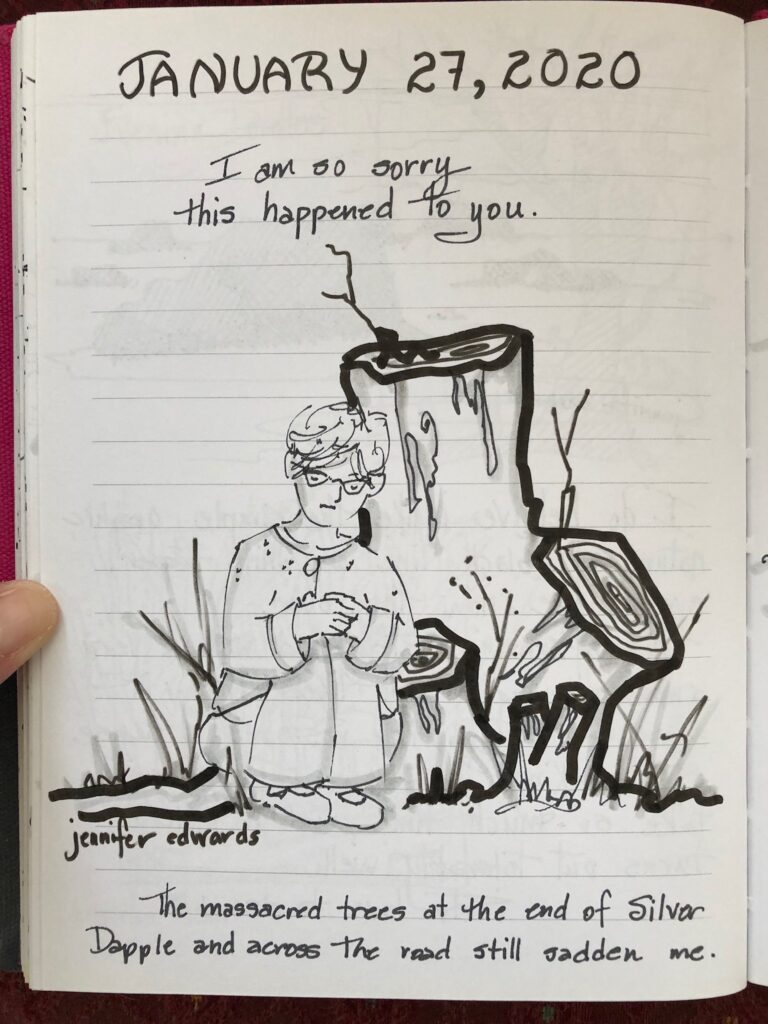 JANUARY 27, 2020
I am so sorry
this happened to you.
jennifer edwards
The massacred trees at the end of Silver
Dapple and across the road still sadden me.